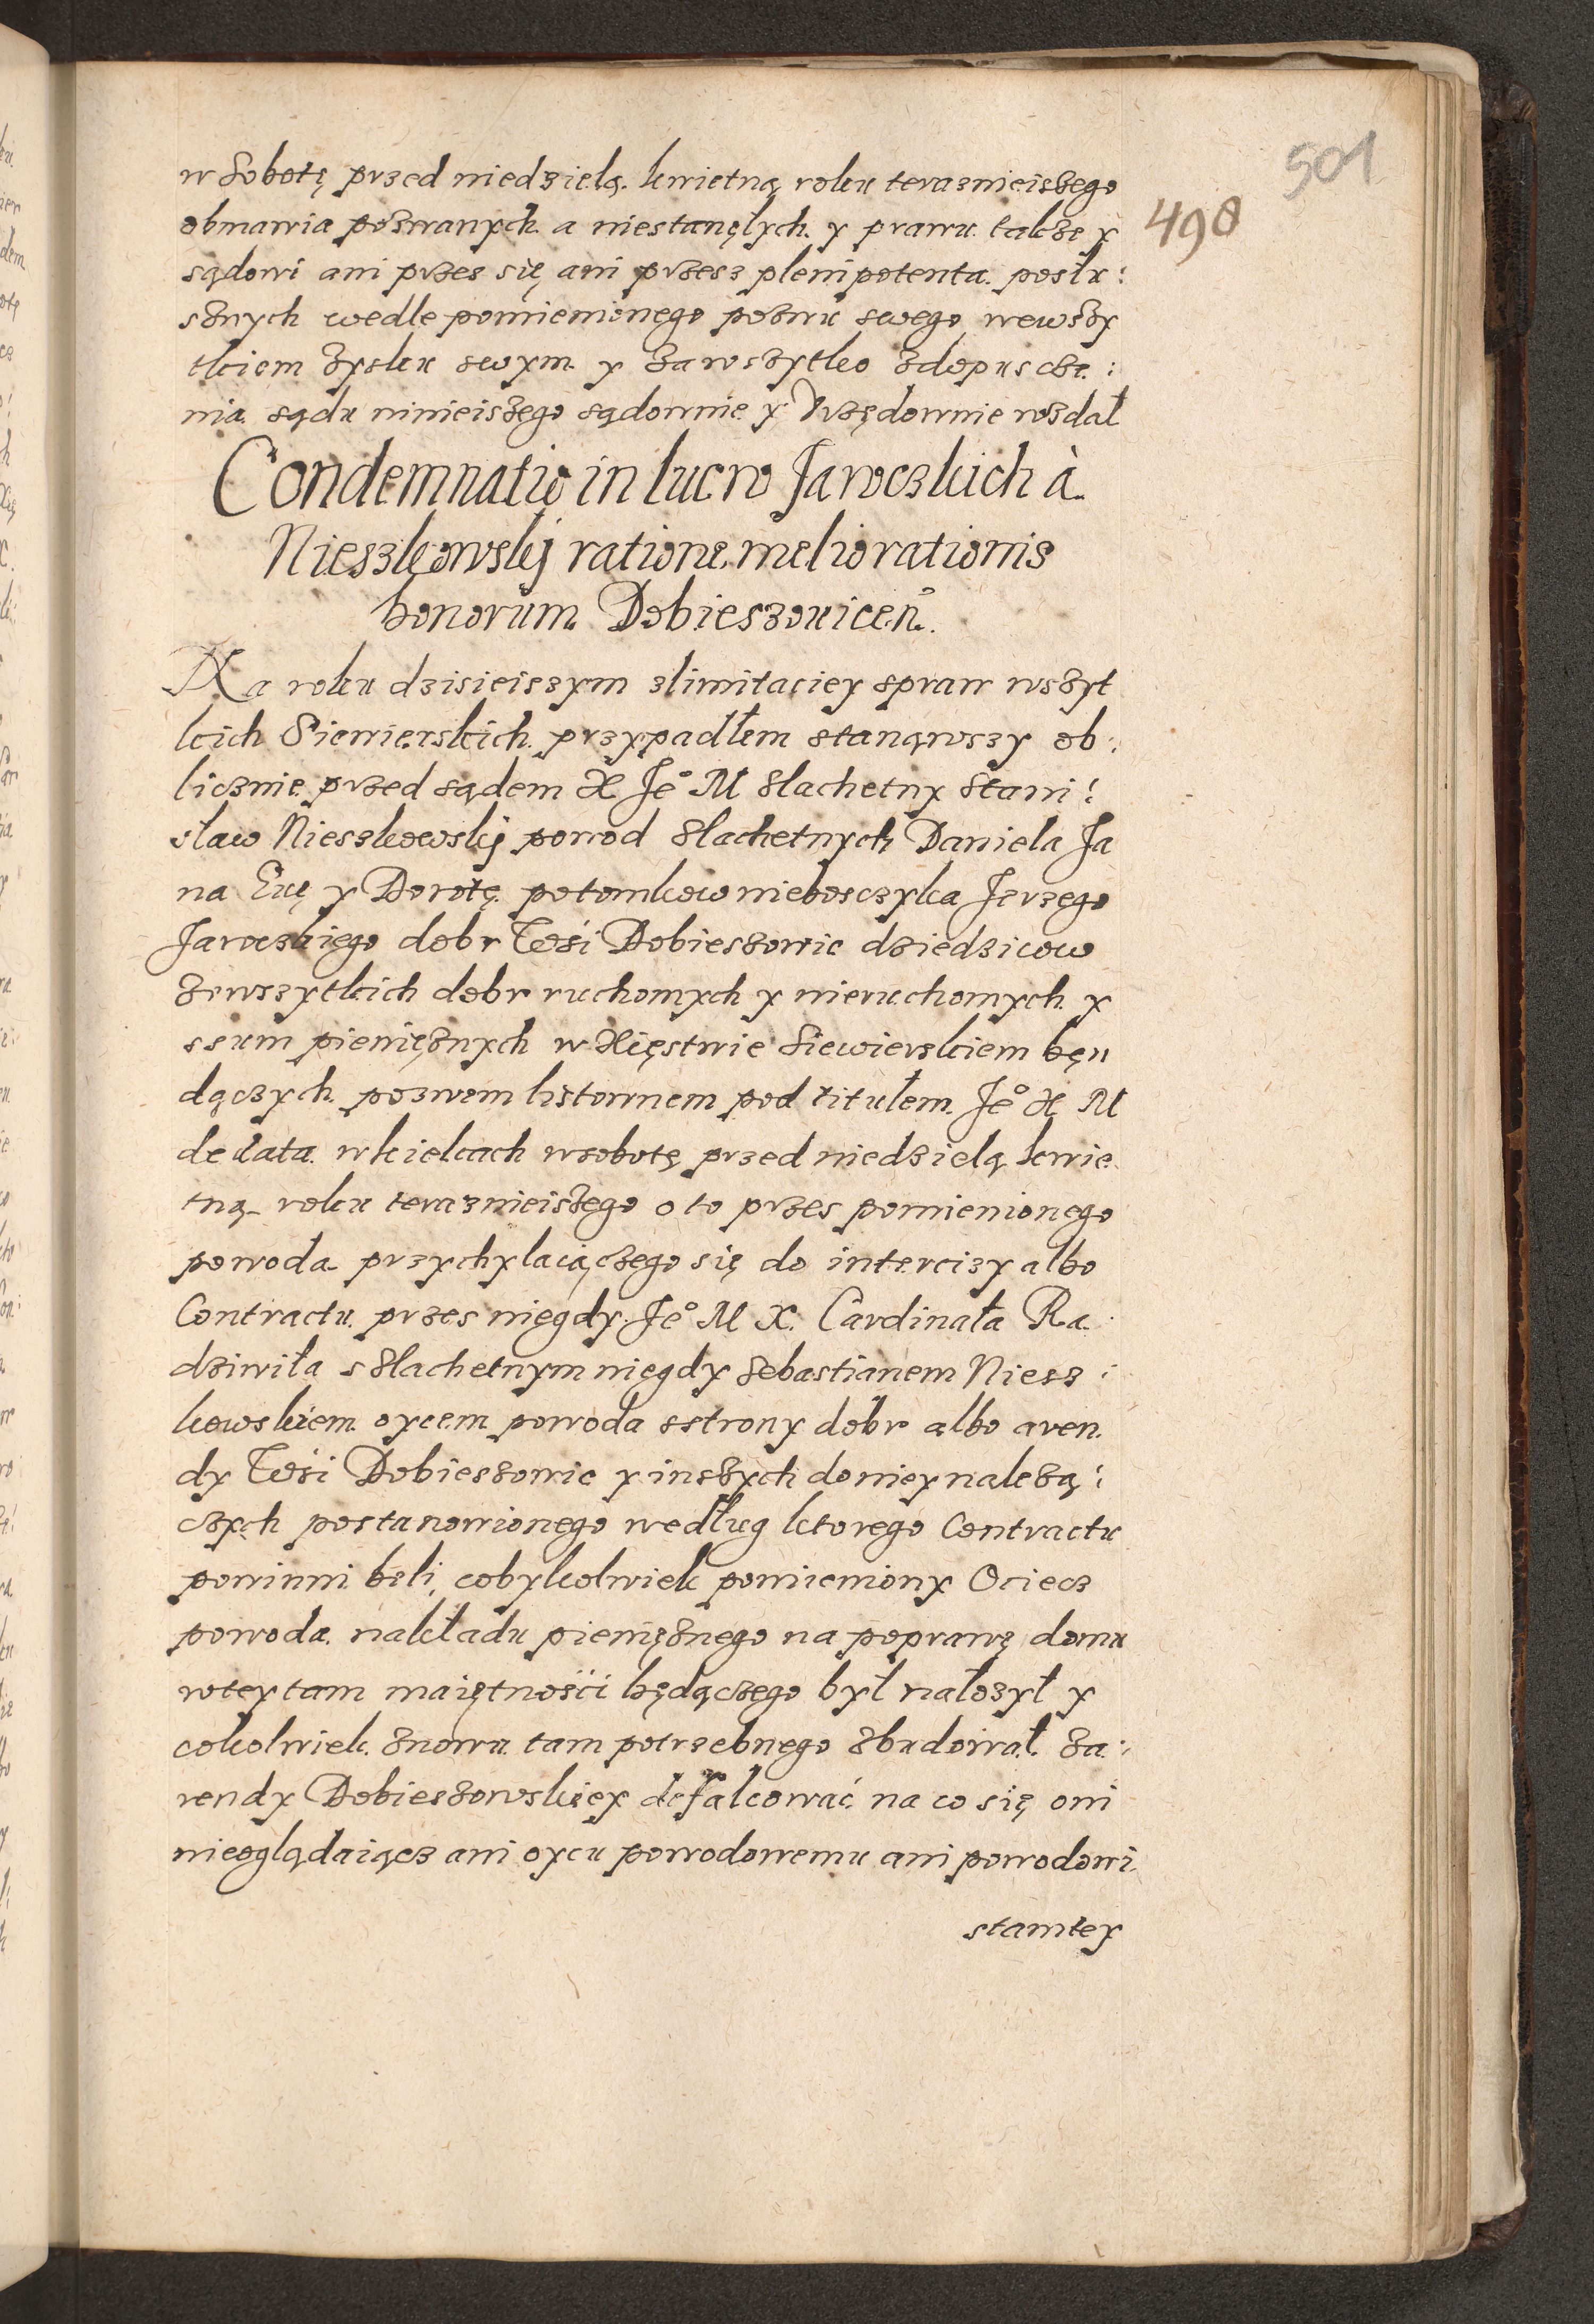 501
498
w Sobotę przed niedzielą kwietną roku teraznieiszego
obmawia pozwanych a niestanęłych y prawu także y
sądowi ani przes się ani przesz plenipotenta posłu:
sznych wedle pomienionego pozwu swego wewszy
tkiem zysku swym y zawszytko zdopuscze:
nia sądu ninieiszego sądownie y Vrzędownie wzdał
Condemnatio in lucro Jaroczkich à
Nieszkowskÿ ratione meliorationis
bonorum Dobieszouicen̄.
Na roku dzisieiszym zlimitaciey spraw wszyt
kich Siewierskich przypadłem stanąwszy ob:
licznie przed sądem X Je° M Slachetny Stani:
sław Nieszkowskÿ powod Slachetnych Daniela Ja
na Ewę y Dorotę potomkow niebosczyka Jerzego
Jaroczkiego dobr Wsi Dobieszowic dziedzicow
zewszytkich dobr ruchomych y nieruchomych y
ssum pieniężnych w Xięstwie Siewierskiem bęn
dączych pozwem listownem pod titułem Je° X M
de data w kielcach wsobotę przed niedzielą kwie
tną roku teraznieiszego o to przes pomienionego
powoda przychylaiączego się do intercizy albo
Contractu przes niegdy Je° M X. Cardinała Ra
dziwiła s Slachetnym niegdy Sebastianem Niesz:
kowskiem oycem powoda sstrony dobr albo aren
dy Wsi Dobieszowic y inszych do niey należą:
czych postanowionego według ktorego Contractu
powinni beli cobykolwiek pomieniony Ociecz
powoda nakładu pieniężnego na poprawę domu
wtey tam maiętności będączego był nałozył y
cokolwiek znowu tam potrzebnego zbudował za:
rendy Dobieszowskiey defalcować na co się oni
nieoglądaiącz ani oycu powodowemu ani powodowi
stamtey